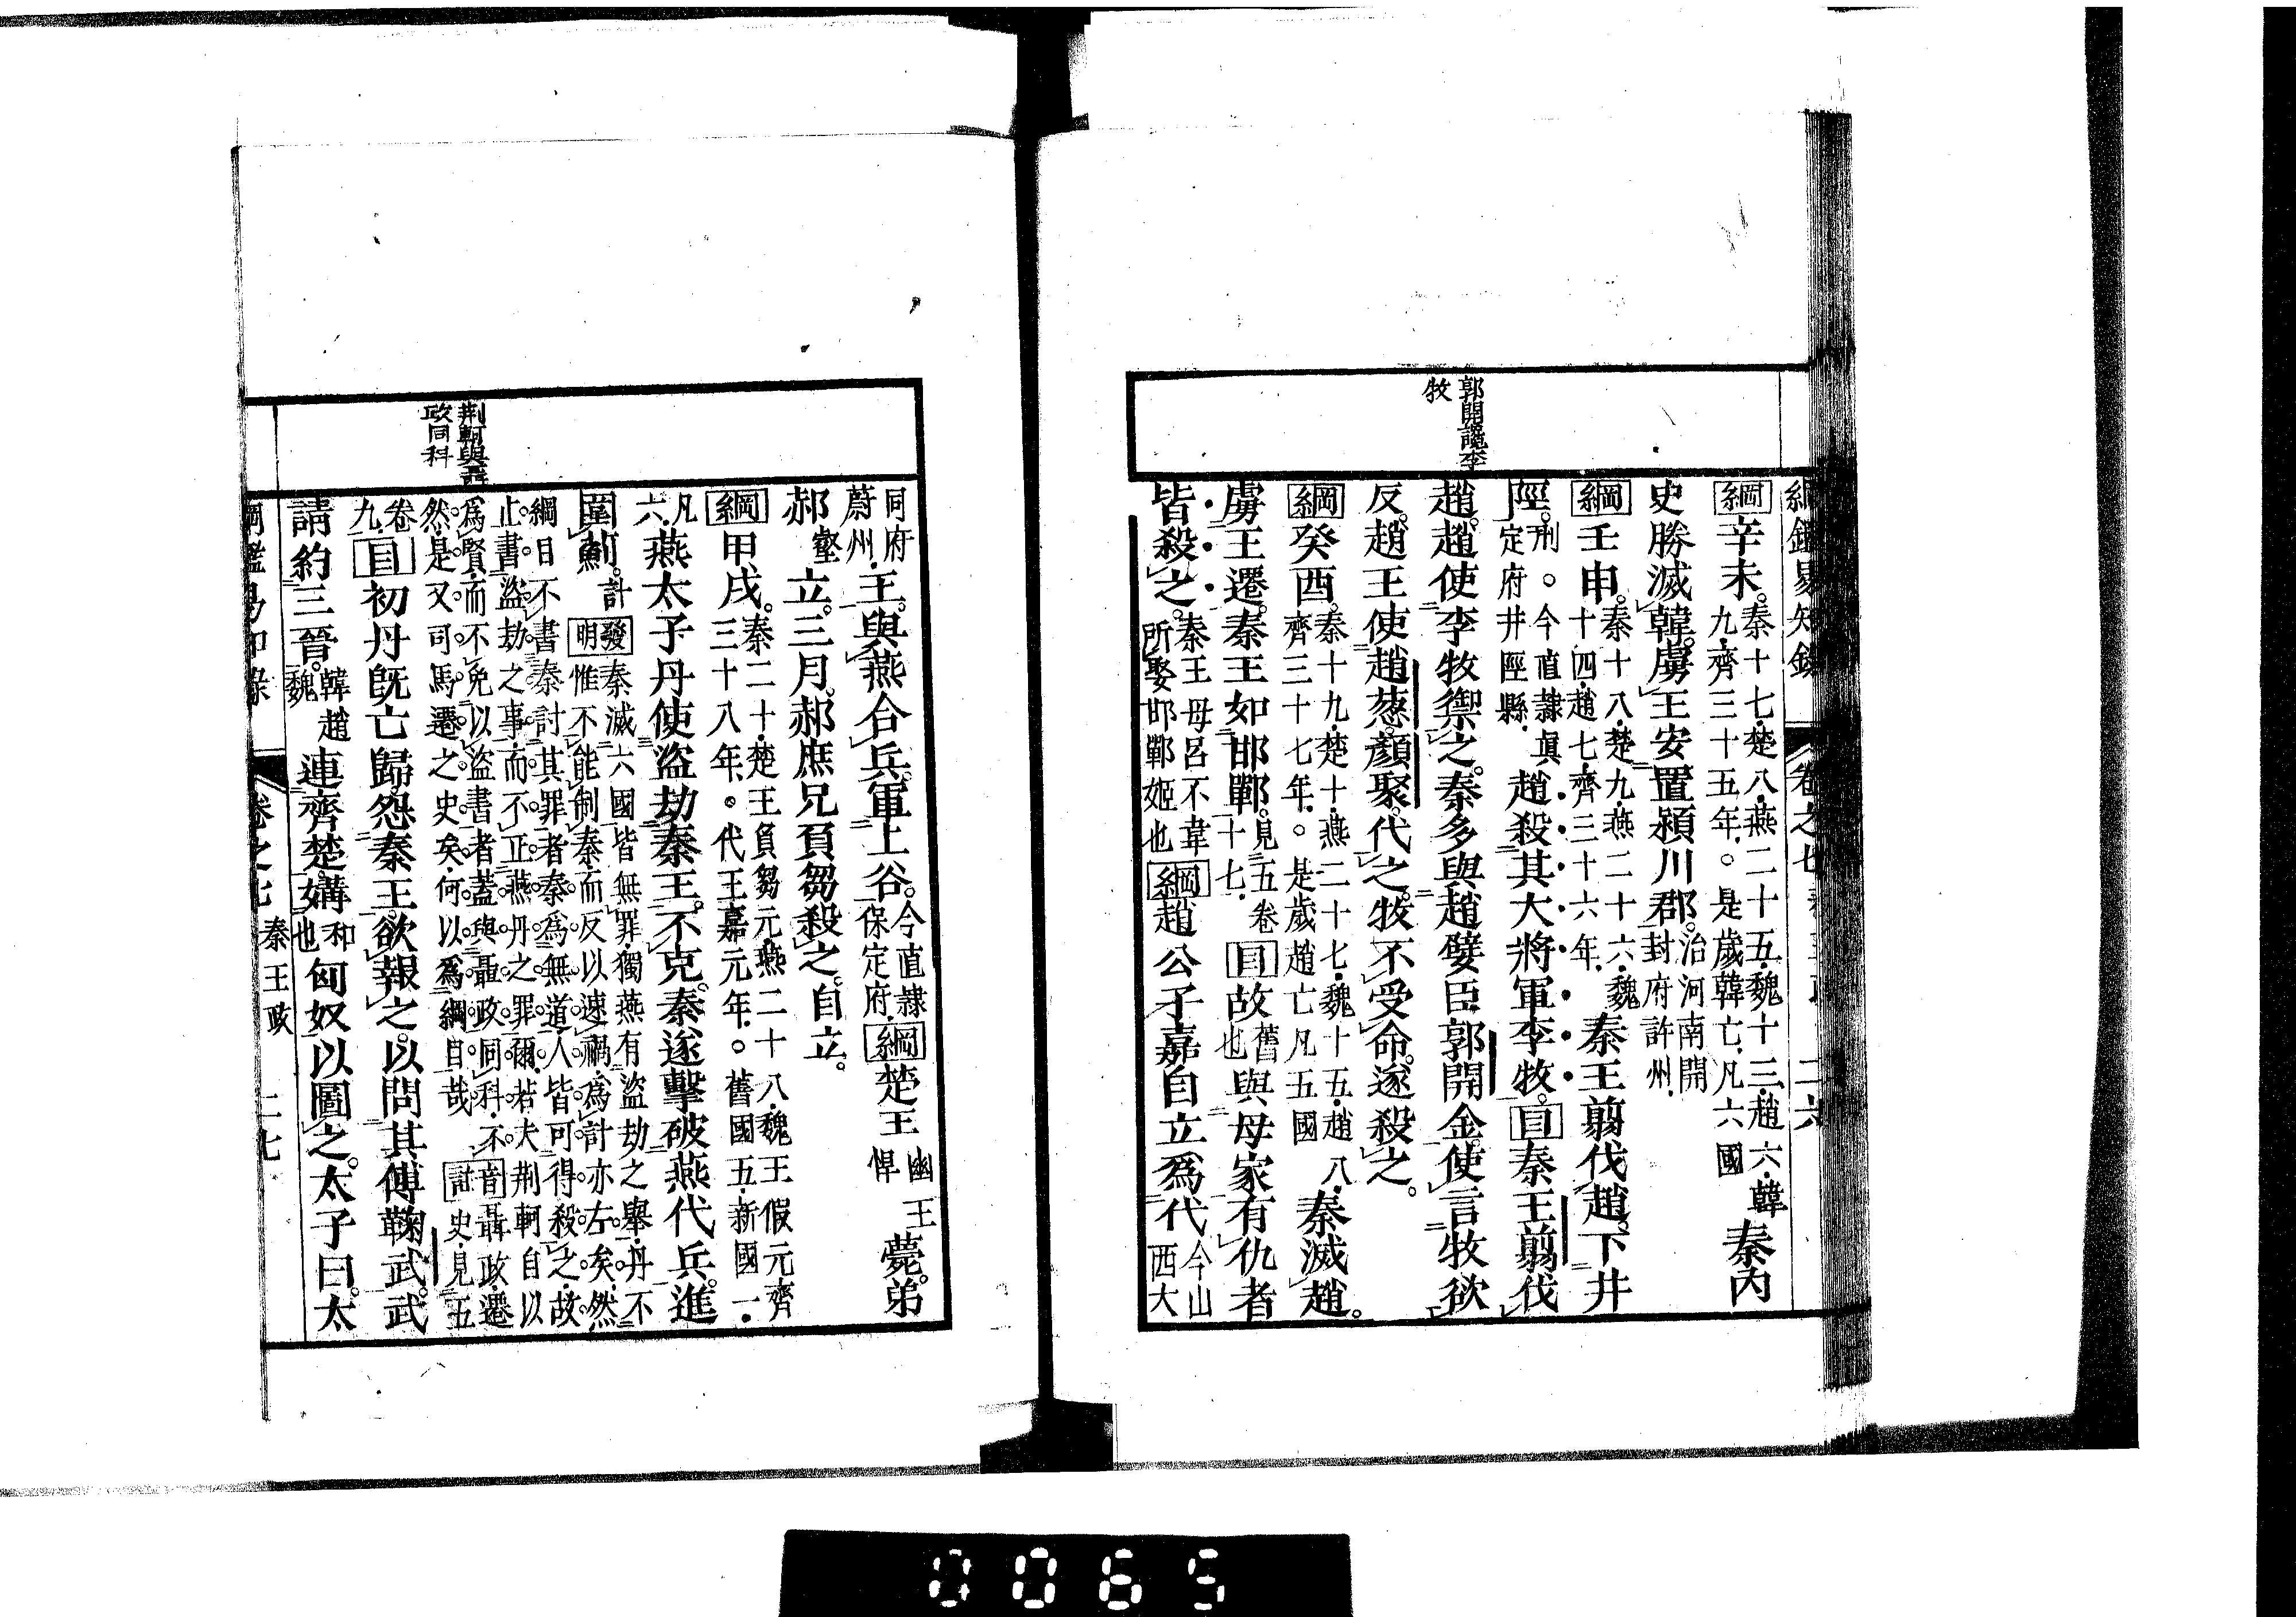 郭開讒李
牧
綱鑑易知錄 卷之七 二六
綱辛未。秦十七、楚八、燕二十五、魏十三、趙六、韓
九、齊三十五年。○是歲韓亡、凡六國
秦內
史勝滅韓。虜王安置潁川郡。治河南開
封府許州、
綱壬申。秦十八、楚九、燕二十六、魏
十四、趙七、齊三十六年、
秦王翦伐趙。下井
陘。刑。今直隸真
定府井陘縣、
趙殺其大將軍李牧。目秦王翦伐
趙。趙使李牧禦之。秦多與趙嬖臣郭開金。使言牧欲
反。趙王使趙葱、顏聚代之。牧不受命。遂殺之。
綱癸酉。秦十九、楚十、燕二十七、魏十五、趙八、
齊三十七年、○是歲趙亡凡五國
秦滅趙。
虜王遷。秦王如邯鄲。見五卷
十七、
目故舊
也
與母家有仇者
皆殺之。秦王母呂不韋
所娶邯鄲姬也
綱趙公子嘉自立爲代今山
西大
荆軻與聶
政同科
同府
蔚州、
王。與燕合兵。軍上谷。今直隸
保定府、
綱楚王幽王
悍
薨。弟
郝壑
立。三月。郝庶兄負芻殺之。自立。
綱甲戌。秦二十、楚王負芻元、燕二十八、魏王假元、齊
三十八年、○代王嘉元年、○舊國五、新國一、
凡
六、
燕太子丹使盜劫秦王。不克。秦遂擊破燕代兵。進
圍薊。計
發明秦滅六國皆無罪、獨燕有盜劫之舉、丹不
惟不能制秦、而反以速禍、爲計亦左矣、然
綱目不書秦討其罪者、秦爲無道、人皆可得殺之、故
止書盜劫之事、而不正燕丹之罪爾、若夫荆軻自以
爲賢、而不免以盜書者、蓋與聶政同科、不
然、是又司馬遷之史矣、何以爲綱目哉
音註聶政、遷
史、見五
卷
九、
目初丹旣亡歸。怨秦王。欲報之。以問其傅鞠武。武
請約三晉。韓趙
魏
連齊楚。媾和
也
匈奴以圖之。太子曰。太
卷之七 秦王政 二七
0065